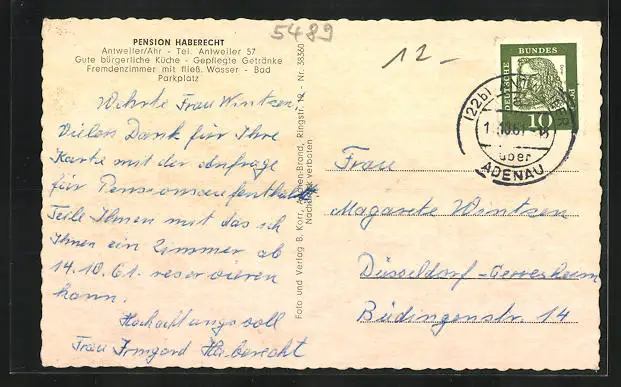 PENSION HABERECHT
Antweiler/Ahr - Tel. Antweiler 57
Gute bürgerliche Küche - Gepflegte Getränke
Fremdenzimmer mit fließ. Wasser - Bad
Parkplatz
5489
12-
Wehrte Frau Wintzen,
Vielen Dank für Ihre
Karte mit der anfrage
für Pensionsaufenthalt
Teile Ihnen mit das ich
Ihnen ein Zimmer ab
14.10.61. reservieren
kann.
Hochachtungsvoll
Frau Irmgard Haberecht
Foto und Verlag B. Korr, Aachen-Brand, Ringstr. 19 - Nr. 38360
Nachdruck verboten
DEUTSCHE
BUNDES
POST
10
(22b)
über
ADENAU
Frau
Magarete Wintzen
Düsseldorf-Gerresheim
Büdingenstr. 14